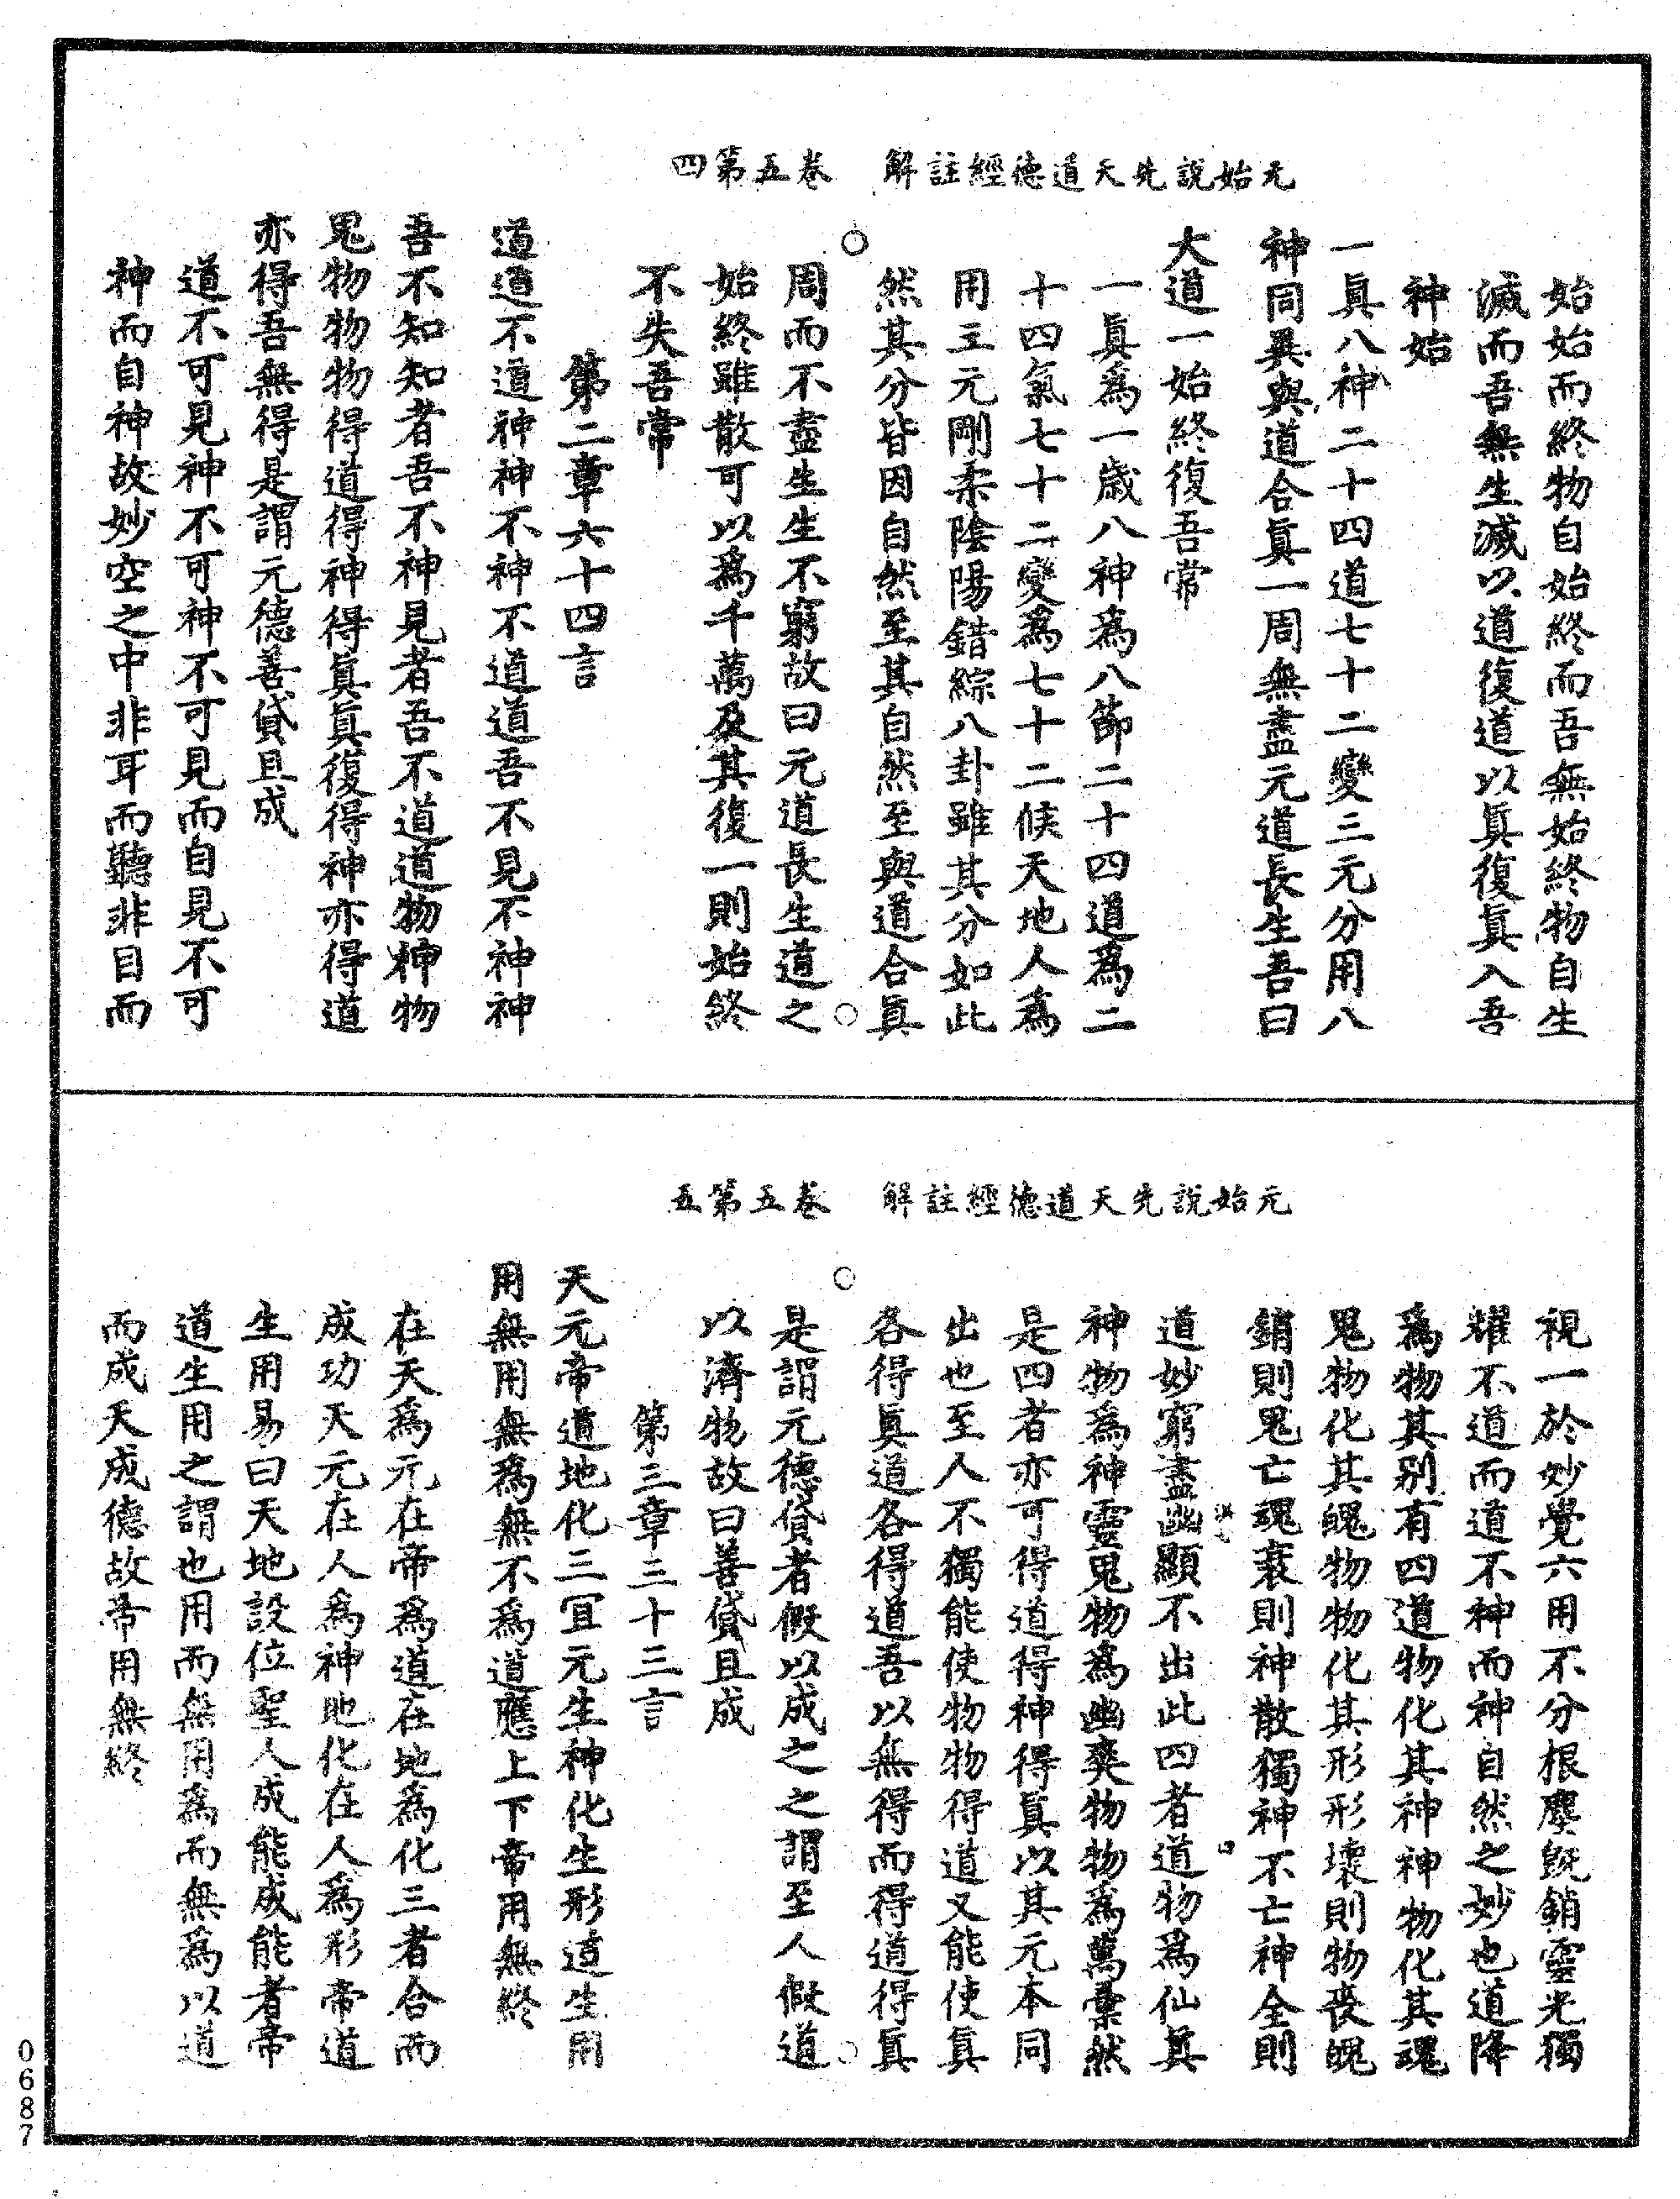 元始說先天道德經註解 卷五第四
始始而終物自始終而吾無始終物自生
滅而吾無生滅以道復道以眞復眞入吾
神始
一眞八神二十四道七十二變三元分用八
神同異與道合眞一周無盡元道長生吾曰
大道一始終復吾常
一眞爲一歲八神爲八節二十四道爲二
十四氣七十二變爲七十二候天地人爲
用三元剛柔陰陽錯綜八卦雖其分如此
然其分皆因自然至其自然至與道合眞
周而不盡生生不窮故曰元道長生道之
始終雖散可以爲千萬及其復一則始終
不失吾常
第二章六十四言
道道不道神神不神不道道吾不見不神神
吾不知知者吾不神見者吾不道道物神物
鬼物物物得道得神得眞眞復得神亦得道
亦得吾無得是謂元德善貸且成
道不可見神不可神不可見而自見不可
神而自神故妙空之中非耳而聽非目而
元始說先天道德經註解 卷五第五
視一於妙覺六用不分根塵旣銷靈光獨
耀不道而道不神而神自然之妙也道降
爲物其别有四道物化其神神物化其魂
鬼物化其魄物物化其形形壞則物喪魄
銷則鬼亡魂衰則神散獨神不亡神全則
道妙窮盡幽顯不出此四者道物爲仙眞
神物爲神靈鬼物爲幽爽物物爲萬彙然
是四者亦可得道得神得眞以其元本同
出也至人不獨能使物物得道又能使眞
各得眞道各得道吾以無得而得道得眞
是謂元德貸者假以成之之謂至人假道
以濟物故曰善貸且成
第三章三十三言
天元帝道地化三冝元生神化生形道生用
用無用無爲無不爲道應上下帝用無終
在天爲元在帝爲道在地爲化三者合而
成功天元在人爲神地化在人爲形帝道
生用易曰天地設位聖人成能成能者帝
道生用之謂也用而無用爲而無爲以道
而成天成德故帝用無終
0687